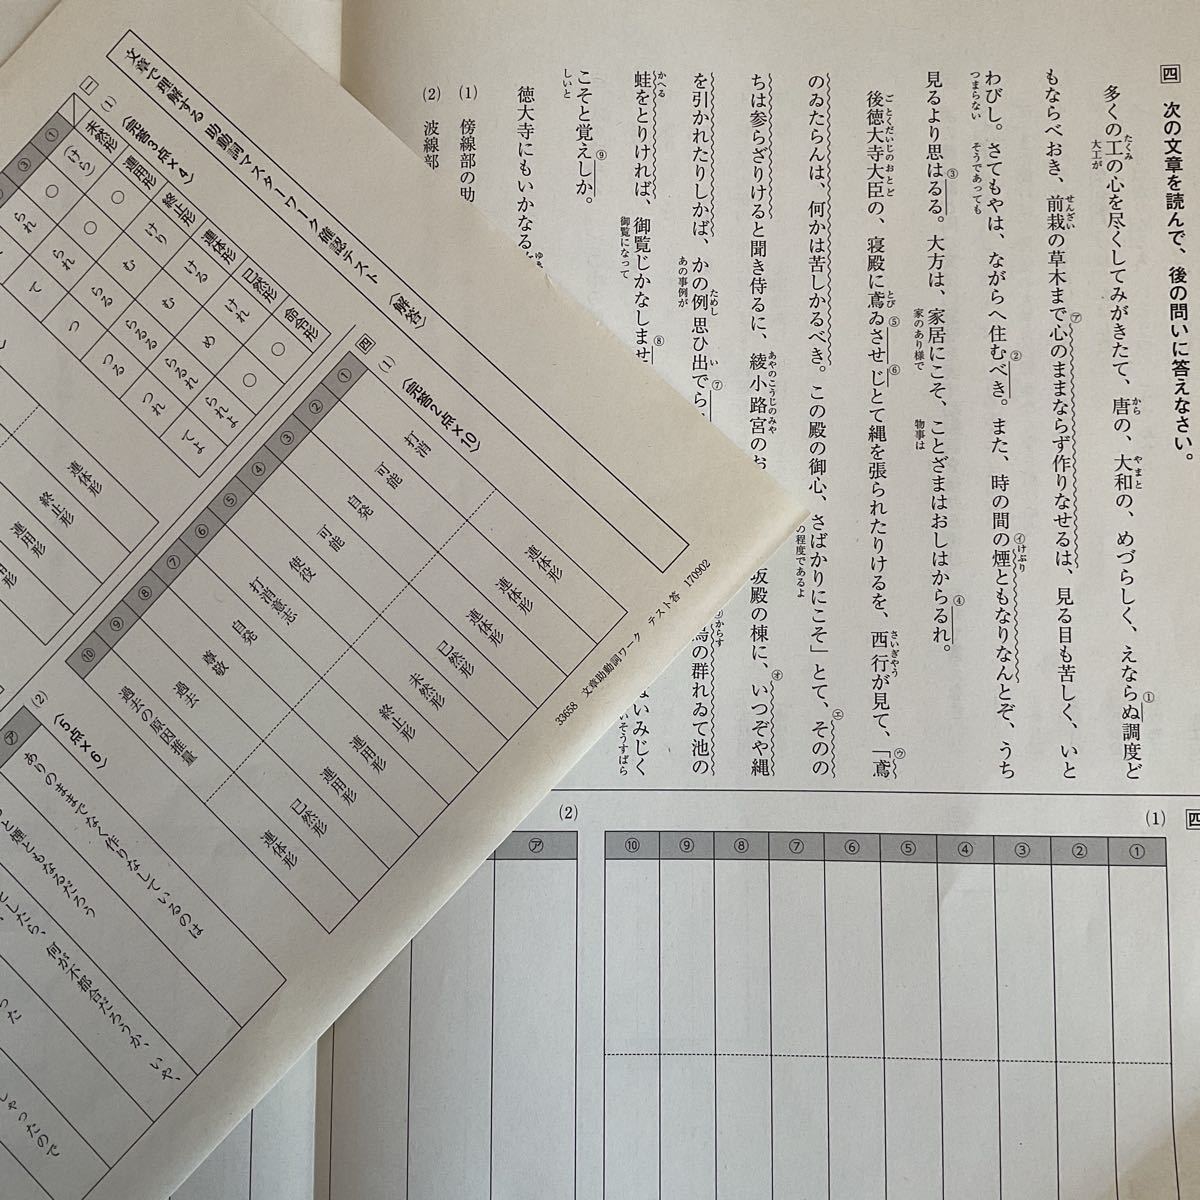 四 次の文章を読んで、後の問いに答えなさい。
多くの工の心を尽くしてみがきたて、唐の、大和の、めづらしく、えならぬ調度ど
たくみ
大工が
から
やまと
①
もならべおき、前栽の草木まで心のままならず作りなせるは、見る目も苦しく、いと
せんざい
㋐
わびし。さてもやは、ながらへ住むべき。また、時の間の煙ともなりなんとぞ、うち
つまらない
そうであっても
②
㋑
けぶり
見るより思はるる。大方は、家居にこそ、ことざまはおしはからるれ。
③
家のあり様で
物事は
④
後徳大寺大臣の、寝殿に鳶ゐさせじとて縄を張られたりけるを、西行が見て、「鳶
ごとくだいじのおとど
とび
⑤
⑥
さいぎやう
㋒
のゐたらんは、何かは苦しかるべき。この殿の御心、さばかりにこそ」とて、そのの
の程度であるよ
㋓
ちは参らざりけると聞き侍るに、綾小路宮のお
あやのこうじのみや
坂殿の棟に、いつぞや縄
㋔
を引かれたりしかば、かの例思ひ出でら
あの事例が
ためし
い
⑦
の群れゐて池の
からす
蛙をとりければ、御覧じかなしませ
かへる
御覧になって
⑧
いみじく
こそと覚えしか。
しいと
⑨
徳大寺にもいかなる
(1) 傍線部の助
(2) 波線部
四
(1)
① ② ③ ④ ⑤ ⑥ ⑦ ⑧ ⑨ ⑩
(2)
㋐
文章で理解する 助動詞マスターワーク確認テスト 〈解答〉
一
(1) 〈完答3点×4〉
未然形 連用形 終止形 連体形 已然形 命令形
① (けら) ○ けり ける けれ ○
③ ○ ○ む む め ○
られ られ らる らるる らるれ られよ
て て つ つる つれ てよ
連体形
終止形
連用形
四
(1) 〈完答2点×10〉
① 打消 連体形
② 可能 連体形
③ 自発 連体形
④ 可能 已然形
⑤ 使役 未然形
⑥ 打消意志 終止形
⑦ 自発 連用形
⑧ 尊敬 連用形
⑨ 過去 已然形
⑩ 過去の原因推量 連体形
(2) 〈5点×6〉
㋐ ありのままでなく作りなしているのは
と煙ともなるだろう
としたら、何が不都合だろうか、いや、
った
しゃったので
33658 文章助動詞ワーク テスト答 170902